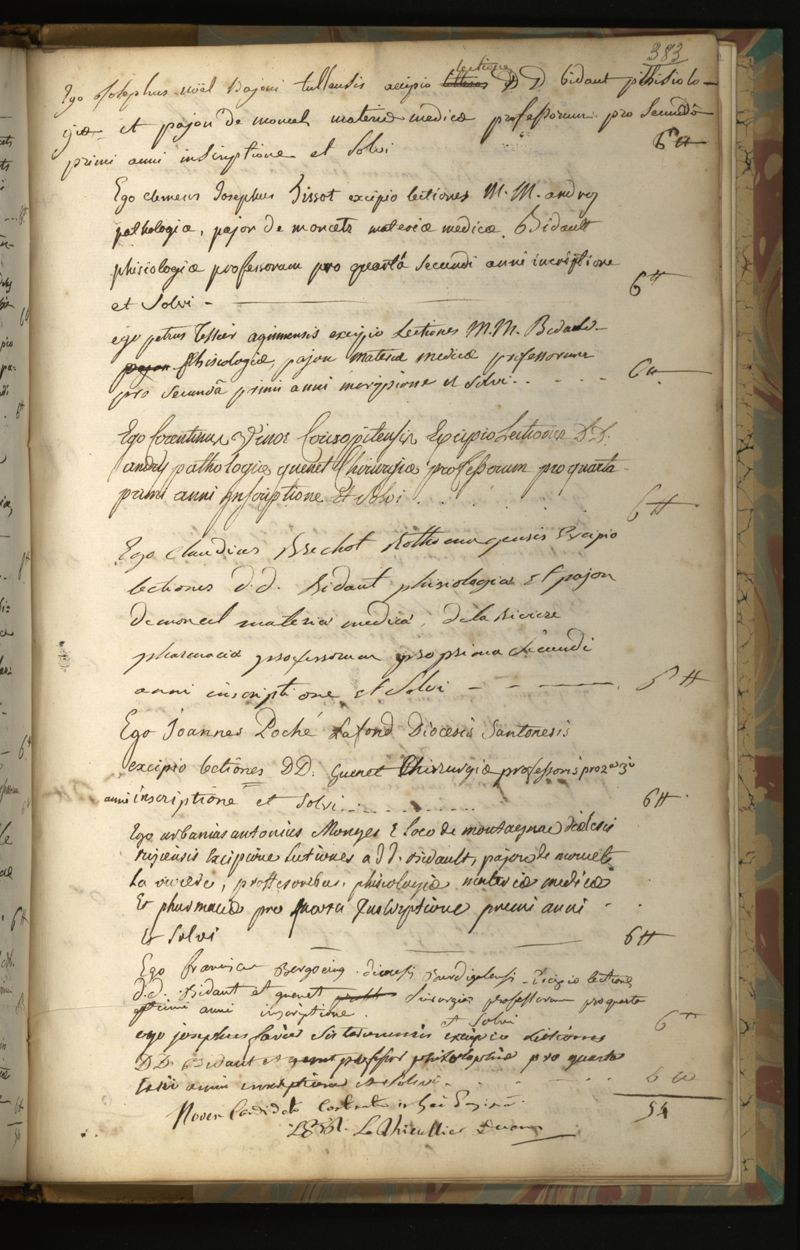 383
Ego Josephus noël Bajeni tullensis accipio lectiones D D bidaut phisiolo-
giæ et pajon de moncel materiæ medicæ professorum pro secundâ
primi anni inscriptione et solvi 6 ₶
Ego clemens Josephus Tissot excipio lectiones M. M. andry
pathologiæ, pajon de moncets materiæ medicæ, Bidault
phisiologiæ professorum pro quartâ secundi anni incriptione
et solvi - 6 ₶
ego petrus Tessier aginnensis excipio lectiones M.M. Bidault
phisiologiæ, pajon materiæ medicæ professorum
pro secundâ primi anni inscripsione et solvi . . . . 6 ₶
Ego Corentinus Corisopitensis Excipio Lectiones D.D.
andry pathologiæ guenet Chirurgiæ professorum pro quarta
primi anni inscriptione Et solvi . . . 6 ₶
Ego Claudius Brechot Excipio
lectiones d.d. Bidaut phisiologiæ Et pajon
demoncel materiæ medicæ, de la Riviere
pharmaciæ professorum pro prima secundi
anni inscriptione et solvi - - 6 ₶
Ego Joannes Poché Lafond Diocesis Santonesis
excipio lectiones DD. Guenet Chirurgiæ professoris pro 2â 3i
anni inscriptione et solvi . . . . 6 ₶
Ego urbanus antonius Monges E loco de montagnac diœcesis
excipio lectiones a dd. Bidault, pajon de moncets
la riviere, professoribus, phisiologiæ materiæ medicæ
Et pharmaciæ pro quarta Inscriptione primi anni
Et solvi 6 ₶
Ego franciscus Bergoeing diocesis Burdigalensis Excipio lectiones
d.d. Bidaut et guenet chirurgiæ professorum pro quarta
primi anni inscriptione. et solvi 6 ₶
ego josephus excipio lectiones
DD. Bidaut et professor pro quarta
anni inscriptione et solvi . . . 6 ₶
54
Novem Candidati
Le Thieullier Decanus